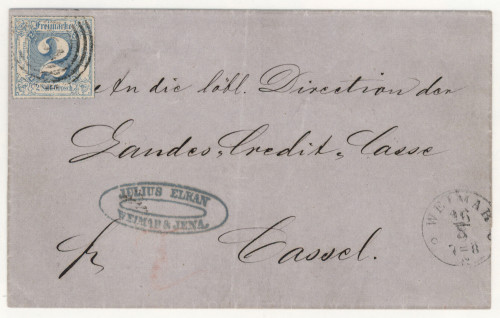 Freimarke
2
An die löbl. Direction der
Landes-Credit-Casse
JULIUS ELKAN
WEIMAR & JENA.
Cassel.
WEIMAR
16